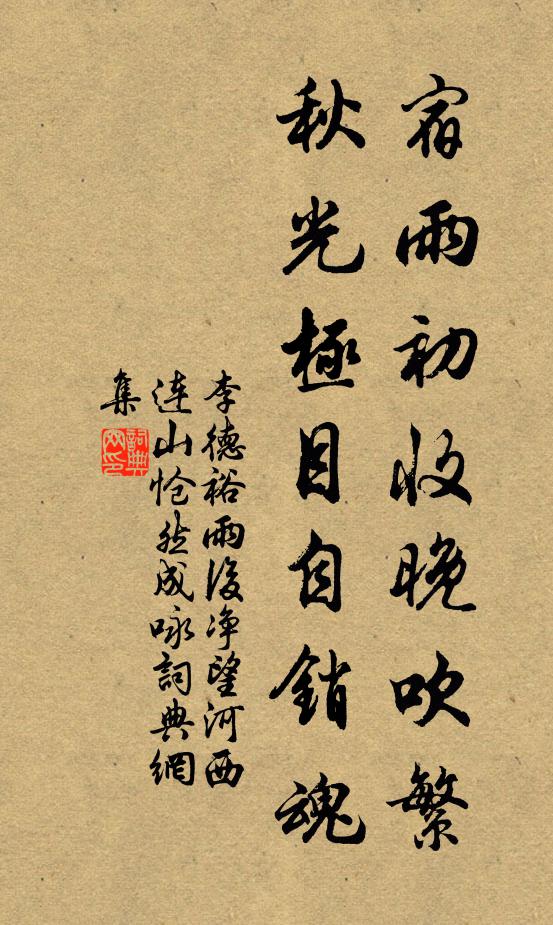 宿雨初收晚吹繁
秋光極目自銷魂
李德裕雨後净望河西
連山愴然成咏詞典網
集
詞典
网印